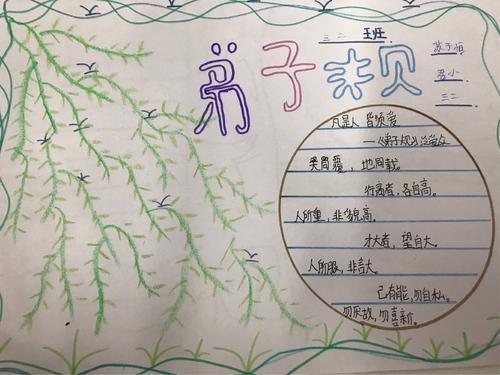 三二班
弟子规
三二
凡是人 皆须爱
——《弟子规》
天同覆，地同载。
行高者，名自高。
人所重，非貌高。
才大者，望自大。
人所服，非言大。
己有能，勿自私。
勿厌故，勿喜新。